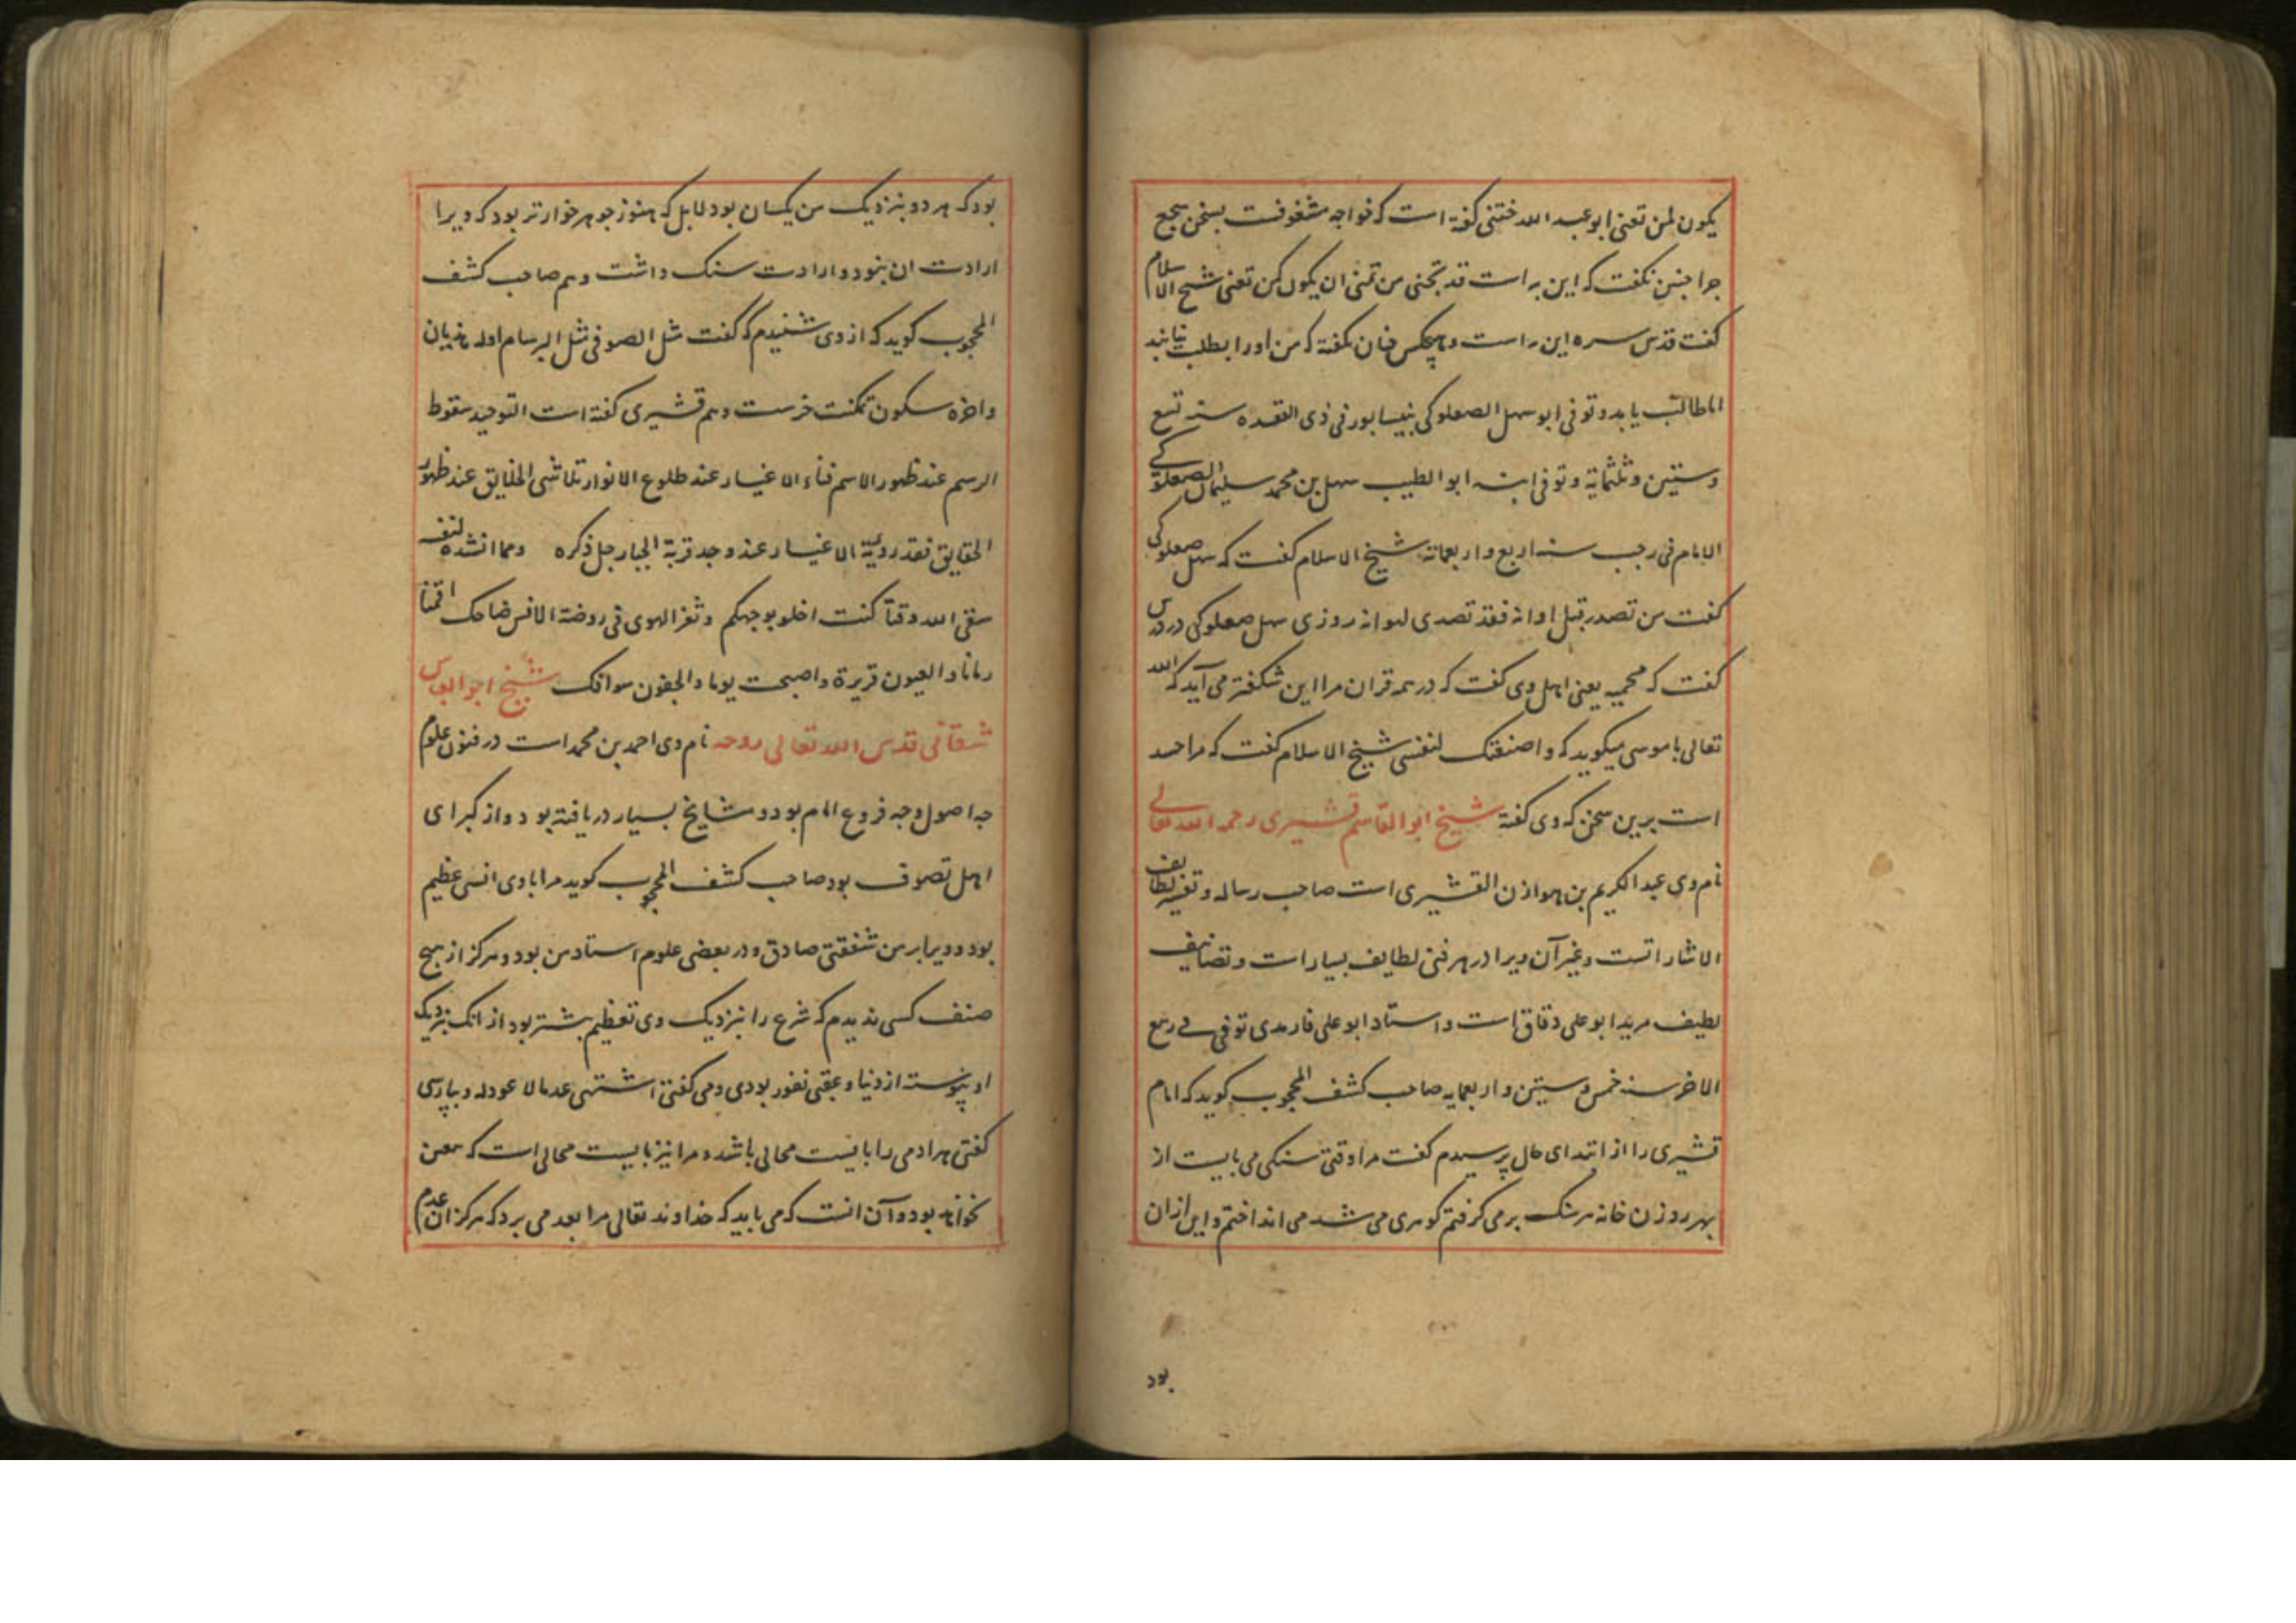 یکون لمن تعنی ابو عبد الله ختنی کفته است که خواجه مشغوفت بسخن سجع
جرا جنین نکفت که این به است قد تجنی من تمنی ان یکون کمن تعنی شیخ الاسلام
کفت قدس سره این راست و هیچکس جنان نکفته که من او را بطلب نیابند
اما طالب یابد و توفی ابو سهل الصعلوکی بنیسابور فی ذی القعده سنه تسع
و ستین و ثلثمایة و توفی ابنه ابو الطیب سهل بن محمد سلیمان الصعلوکی
الامام فی رجب سنه اربع و اربعمائه شیخ الاسلام کفت که سهل صعلوکی
کفت من تصدر قبل اوانه فقد تصدی لهوانه روزی سهل صعلوکی در درس
کفت که محمیه یعنی اهل وی کفت که در همه قران مرا این شکفتر می آید که الله
تعالی با موسی میکوید که و اصنعتک لنفسی شیخ الاسلام کفت که مرا حسد
است برین سخن که وی کفته شیخ ابو القاسم قشیری رحمه الله تعالی
نام وی عبد الکریم بن هوازن القشیری است صاحب رساله و تفسیر لطایف
الاشاراتست و غیر آن ویرا در هر فنی لطایف بسیار است و تصانیف
لطیف مرید ابو علی دقاق است و استاد ابو علی فارمدی توفی فی ربیع
الاخر سنه خمس و ستین و اربعمایه صاحب کشف المحجوب کوید که امام
قشیری را از ابتدای حال پرسیدم کفت مرا وقتی سنکی می بایست از
بهر روزن خانه هر سنک بر می کرفتم کوهری می شد می انداختم و این ازان
بود
بود که هر دو بنزدیک من یکسان بود لا بل که هنوز جوهر خوارتر بود که ویرا
ارادت ان نبود و ارادت سنک داشت و هم صاحب کشف
المحجوب کوید که از وی شنیدم که کفت مثل الصوفی مثل البرسام اوله هذیان
و اخره سکون تمکنت خرست و هم قشیری کفته است التوحید سقوط
الرسم عند ظهور الاسم فناء الاغیار عند طلوع الانوار تلاشی الخلایق عند ظهور
الحقایق فقد رویة الاغیار عند وجد قربة الجبار جل ذکره و مما انشده لنفسه
سقی الله وقتا کنت اخلو بوجهکم و ثغر الهوی فی روضة الانس ضاحک اقمنا
زمانا و العیون قریرة و اصبحت یوما و الجفون سوافک شیخ ابو العباس
شقانی قدس الله تعالی روحه نام وی احمد بن محمد است در فنون علوم
جه اصول و جه فروع امام بود و مشایخ بسیار دریافته بود و از کبرای
اهل تصوف بود صاحب کشف المحجوب کوید مرا با وی انسی عظیم
بود و ویرا بر من شفقتی صادق و در بعضی علوم استاد من بود و هرکز از هیج
صنف کسی ندیدم که شرع را بنزدیک وی تعظیم بیشتر بود از انک بنزدیک
او پیوسته از دنیا و عقبی نفور بودی و می کفتی اشتهی عدما لا عود له و بپارسی
کفتی هر ادمی را بایست محالی باشد و مرا نیز بایست محالی است که بیقین
نخواهد بود و آن انست که می باید که خداوند تعالی مرا بعد می برد که هرکز ان عدم